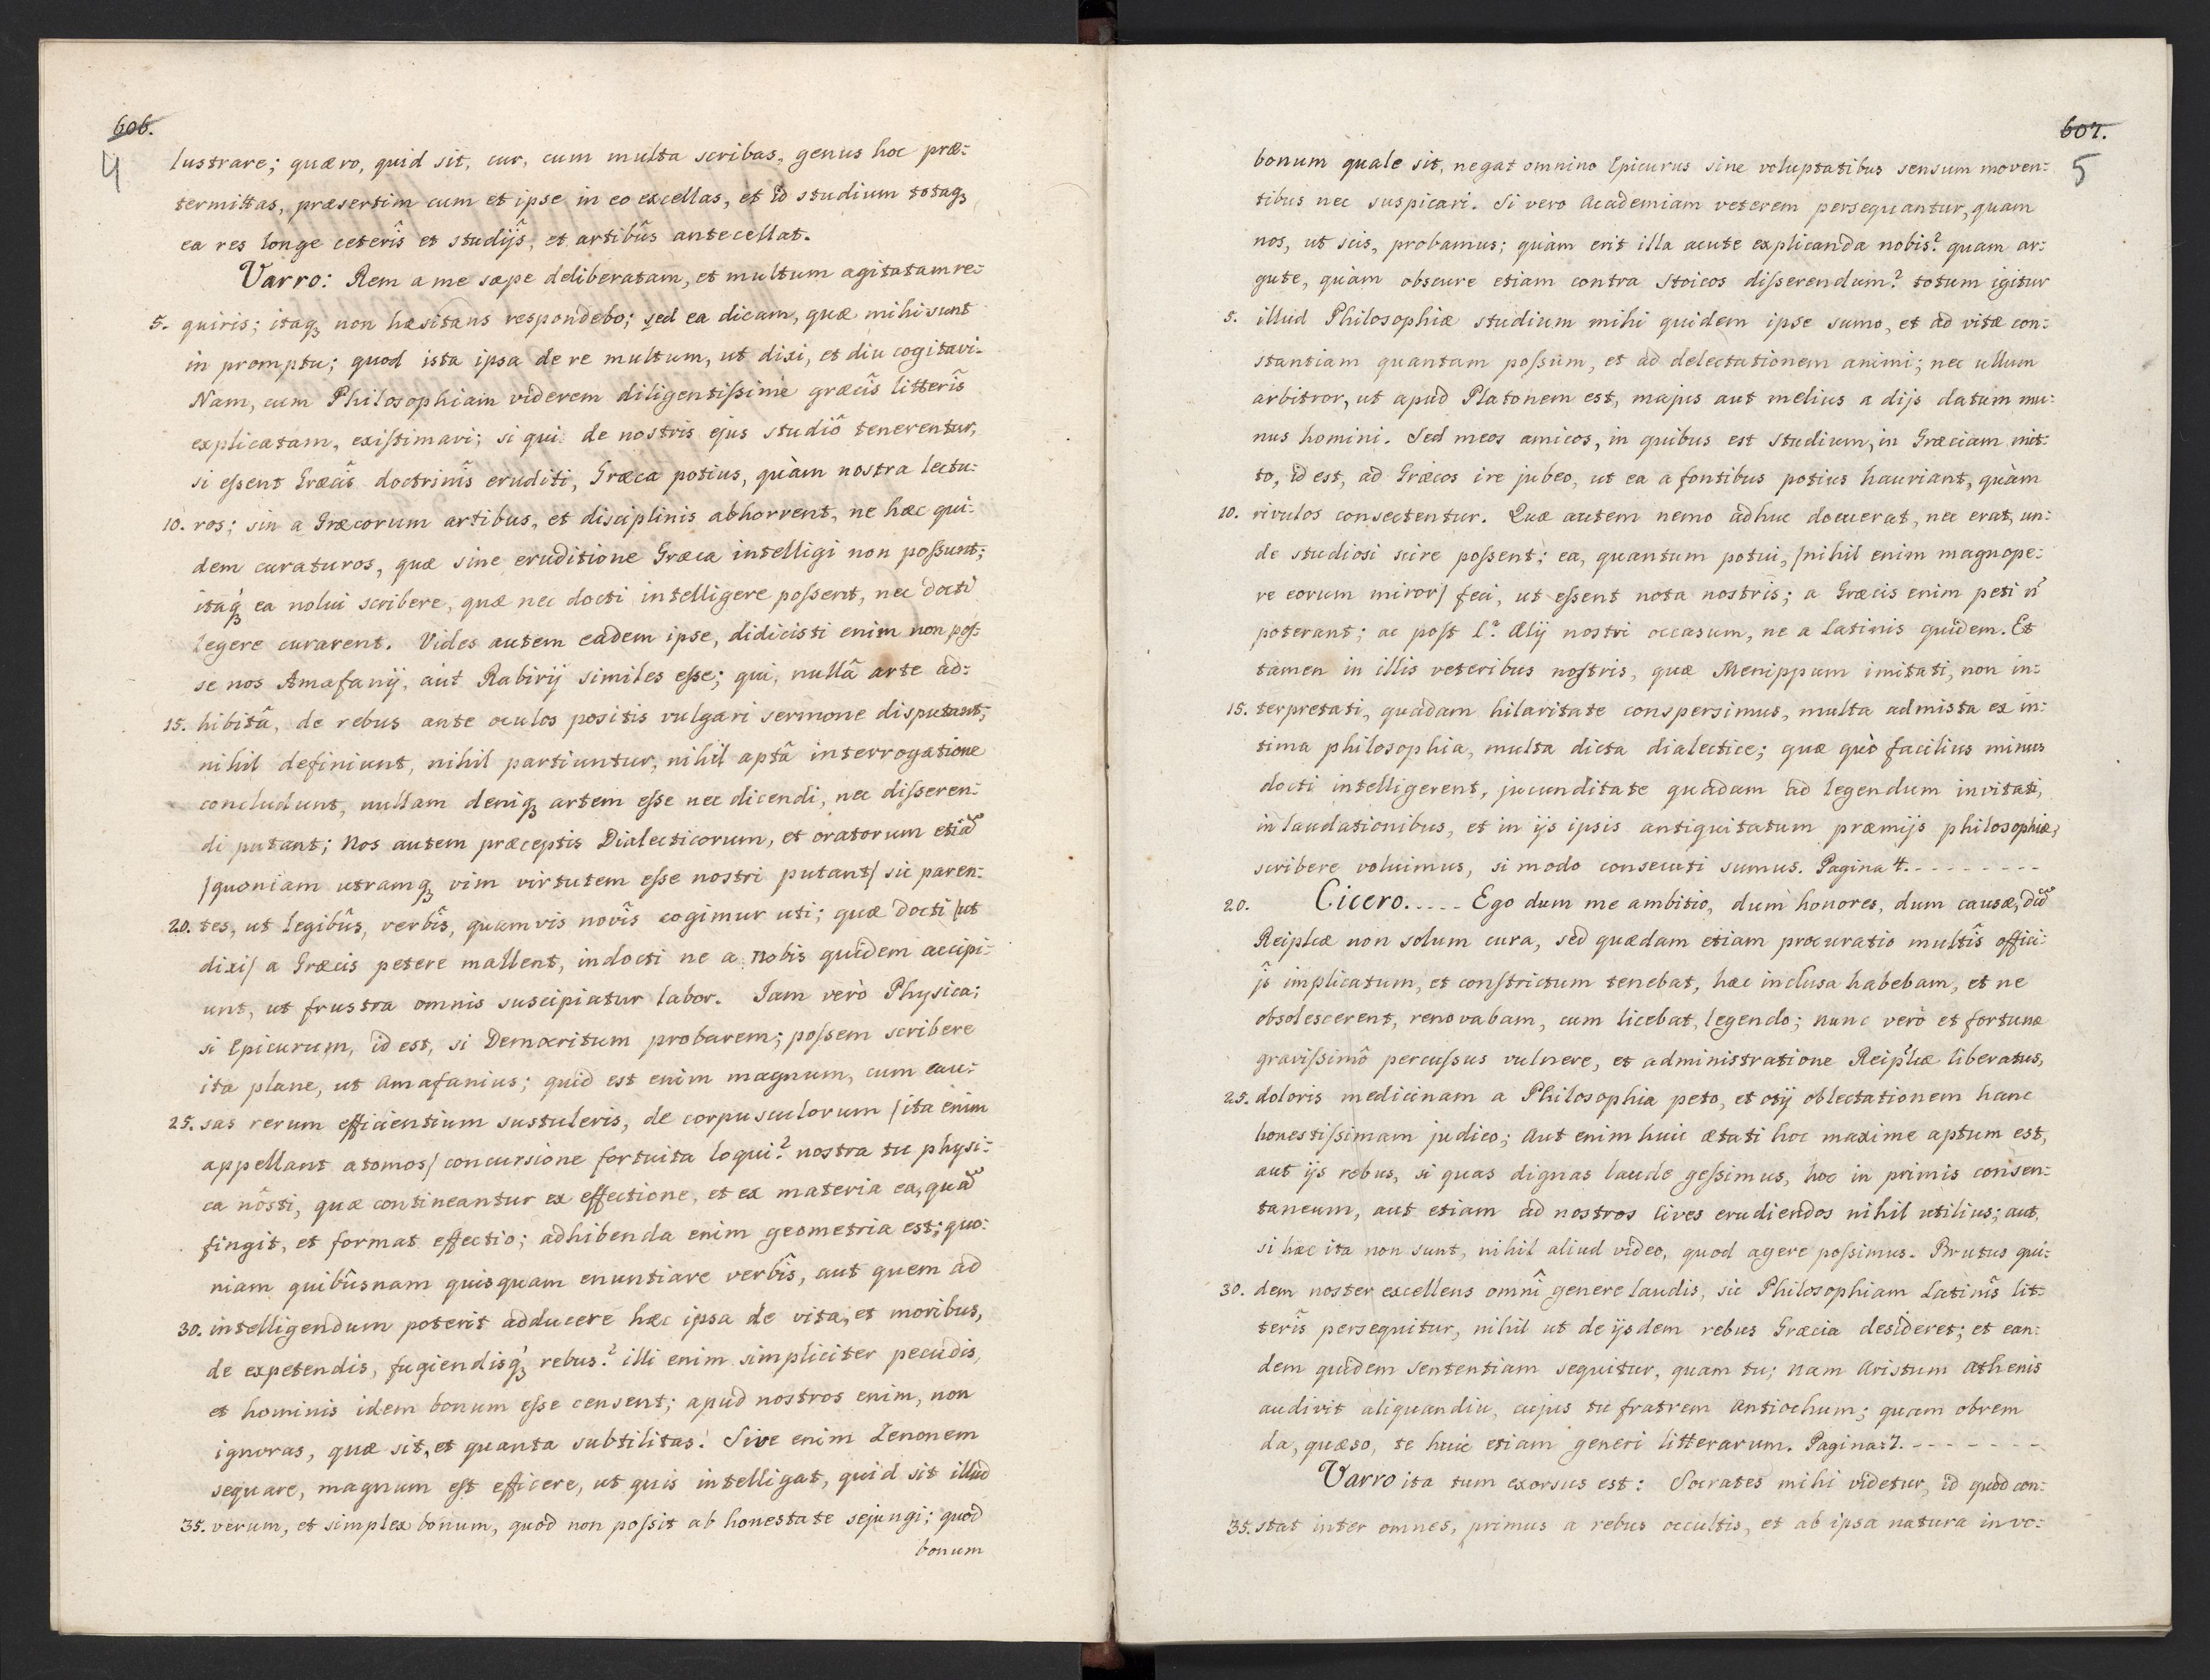 606.
4
lustrare; quæro, quid sit, cur, cum multa scribas, genus hoc præ:
termittas, præsertim cum et ipse in eo excellas, et id studium totaq;
ea res longe ceterîs et studijs̃, et artibûs antecellat.
Varro: Rem a me sæpe deliberatam, et multum agitatam re:
5. quiris; itaq; non hæsitans respondebo; sed ea dicam, quæ mihi sunt
in promptu; quod ista ipsa de re multum, ut dixi, et diu cogitavi.
Nam, cum Philosophiam viderem diligentissimè græcîs litterîs
explicatam, existimavi; si qui de nostris ejus studiô tenerentur,
si essent Græcîs doctrinîs eruditi, Græca potius, quàm nostra lectu:
10. ros; sin a Græcorum artibus, et disciplinis abhorrent, ne hæc qui:
dem curaturos, quæ sine eruditione Græca intelligi non possunt;
itaq́; ea nolui scribere, quæ nec docti intelligere possent, nec docti
legere curarent. Vides autem eadem ipse, didicisti enim non pos:
se nos Amafanij, aut Rabirij similes esse; qui, nullâ arte ad:
15. hibitâ, de rebus ante oculos positis vulgari sermone disputant;
nihil definiunt, nihil partiuntur, nihil aptâ interrogatione
concludunt, nullam deniq; artem esse nec dicendi, nec disseren:
di putant; Nos autem præceptis Dialecticorum, et oratorum etiã
/quoniam utramq; vim virtutem esse nostri putant/ sic paren:
20. tes, ut legibûs, verbîs, quamvis novîs cogimur uti; quæ docti /ut
dixi/ a Græcis petere mallent, indocti ne a nobis quidem accipi:
unt, ut frustra omnis suscipiatur labor. Iam verò Physica;
si Epicurum, id est, si Democritum probarem; possem scribere
ita plane, ut Amafanius; quid est enim magnum, cum cau:
25. sas rerum efficientium sustuleris, de corpusculorum /ita enim
appellant atomos/ concursione fortuita loqui? nostra tu physi:
ca nôsti, quæ contineantur ex effectione, et ex materia ea, quã
fingit, et format effectio; adhibenda enim geometria est; quo:
niam quibûsnam quisquam enuntiare verbîs, aut quem ad
30. intelligendum poterit adducere hæc ipsa de vita, et moribus,
de expetendis, fugiendisq́; rebus? illi enim simpliciter pecudis,
et hominis idem bonum esse censent; apud nostros enim, non
ignoras, quæ sit, et quanta subtilitas! Sive enim Zenonem
sequare, magnum est efficere, ut quis intelligat, quid sit illud
35. verum, et simplex bonum, quod non possit ab honestate sejungi; quod
bonum
607.
5
bonum quale sit, negat omnino Epicurus sine voluptatibus sensum moven:
tibus nec suspicari. Si vero Academiam veterem persequantur, quam
nos, ut scis, probamus; quàm erit illa acute explicanda nobis? quam ar:
gute, quàm obscure etiam contra Stoicos disserendum? totum igitur
5. illud Philosophiæ studium mihi quidem ipse sumo, et ad vitæ con:
stantiam quantam possum, et ad delectationem animi; nec ullum
arbitror, ut apud Platonem est, majus aut melius a dijs datum mu:
nus homini. Sed meos amicos, in quibus est studium, in Græciam mit:
to, id est, ad Græcos ire jubeo, ut ea a fontibus potius hauriant, quàm
10. rivulos consectentur. Quæ autem nemo adhuc docuerat, nec erat, un:
de studiosi scire possent; ea, quantum potui, /nihil enim magnope:
re eorum miror/ feci, ut essent nota nostris; a Græcis enim peti ñ
poterant; ac post L.ͣ Ælij nostri occasum, ne a Latinis quidem. Et
tamen in illis veteribus nostris, quæ Menippum imitati, non in:
15. terpretati, quadam hilaritate conspersimus, multa admista ex in:
tima philosophia, multa dicta dialectice; quæ quò facilius minus
docti intelligerent, jucunditate quadam ad legendum invitati,
in laudationibus, et in ijs ipsis antiquitatum præmijs philosophiæ,
scribere voluimus, si modo consecuti sumus. Pagina 4. - - - - - - - - -
20. Cicero. - - - - Ego dum me ambitio, dum honores, dum causæ, dũ
Reiplicæ non solum cura, sed quædam etiam procuratio multîs offici:
js̃ implicatum, et constrictum tenebat, hæc inclusa habebam, et ne
obsolescerent, renovabam, cum licebat, legendo; nunc verò et fortunæ
gravissimô percussus vulnere, et administratione Reiplicæ liberatus,
25. doloris medicinam a Philosophia peto, et otij oblectationem hanc
honestissimam judico; Aut enim huic ætati hoc maxime aptum est,
aut ijs rebus, si quas dignas laude gessimus, hoc in primis consen:
taneum, aut etiam ad nostros cives erudiendos nihil utilius; aut,
si hæc ita non sunt, nihil aliud video, quod agere possimus. Brutus qui:
30. dem noster excellens omnî genere laudis, sic Philosophiam Latinîs lit:
terîs persequitur, nihil ut de ijsdem rebus Græcia desideret; et ean:
dem quidem sententiam sequitur, quam tu; nam Aristum Athenis
audivit aliquandiu, cujus tu fratrem Antiochum; quam obrem
da, quæso, te huic etiam generi litterarum. Pagina: 7. - - - - - - -
Varro ita tum exorsus est: Socrates mihi videtur, id quod con:
35. stat inter omnes, primus a rebus occultis, et ab ipsa natura invo: